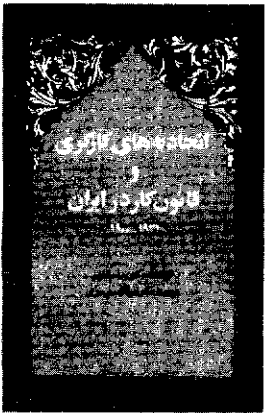 اتحادیه‌های کارگری
و
قانون کار در ایران